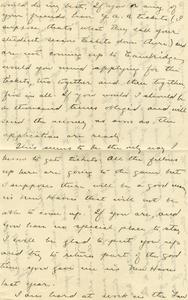 would do my best. If you or any of
your friends have Y.A.A. tickets (I
suppose that's what they call your
student tickets down there) and
are not coming up to Cambridge
would you mind applying for
tickets, two together and three together
five in all. If you would I should be
a thousand times obliged and will
send the money as soon as the
application are ready.
This seems to be the only way I
seem to get tickets. All the fellows
up here are going to the game but
I suppose there will be a good many
in New Haven that will not be
able to come up. If you are, and
you have no special place to stay
I will be glad to put you up
and try to return part of the good
time you gave me in New Haven
last year.
I am hard at work in the